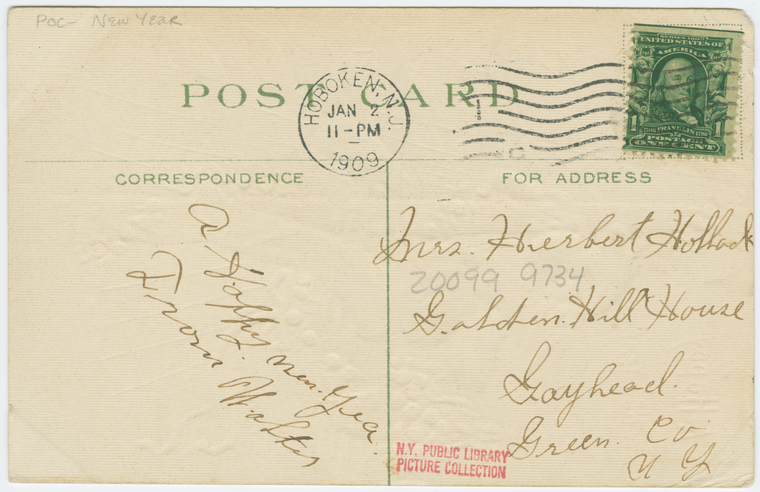 POC - NEW YEAR
POST CARD
HOBOKEN, N.J.
JAN 2
11-PM
1909
1
SERIES 1902
UNITED STATES OF
AMERICA
1706 FRANKLIN 1790
POSTAGE
1 ONE CENT 1
CORRESPONDENCE
FOR ADDRESS
A Happy New Year.
From Walter
Mrs. Herbert Hollock
20099 9734
Golden. Hill House
Gayhead.
Green. Co
N Y
N.Y. PUBLIC LIBRARY
PICTURE COLLECTION